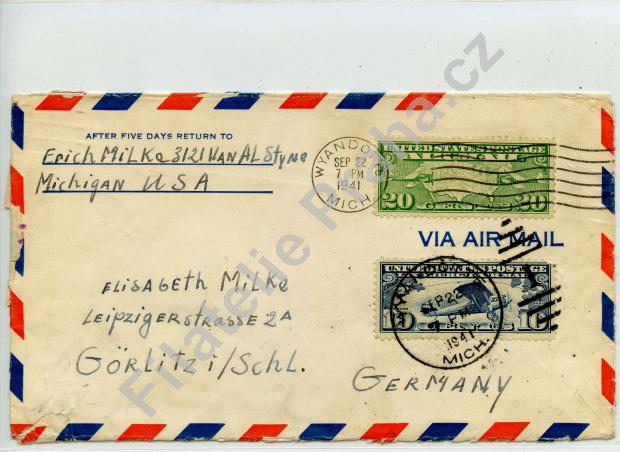 AFTER FIVE DAYS RETURN TO
Erich Milke 3121 VAN ALStyne
Michigan USA
WYANDO
SEP 22
7 PM
1941
MICH.
UNITED STATES POSTAGE
20 CENTS 20
VIA AIR MAIL
UNITED STATES POSTAGE
LINDBERGH AIR MAIL
10 CENTS 10
SEP 22
PM
1941
MICH.
ELISABETH MILKE
LEIPZIGERSTRASSE 2A
GÖRLITZ i/SCHL.
GERMANY
Filatelie Praha.cz